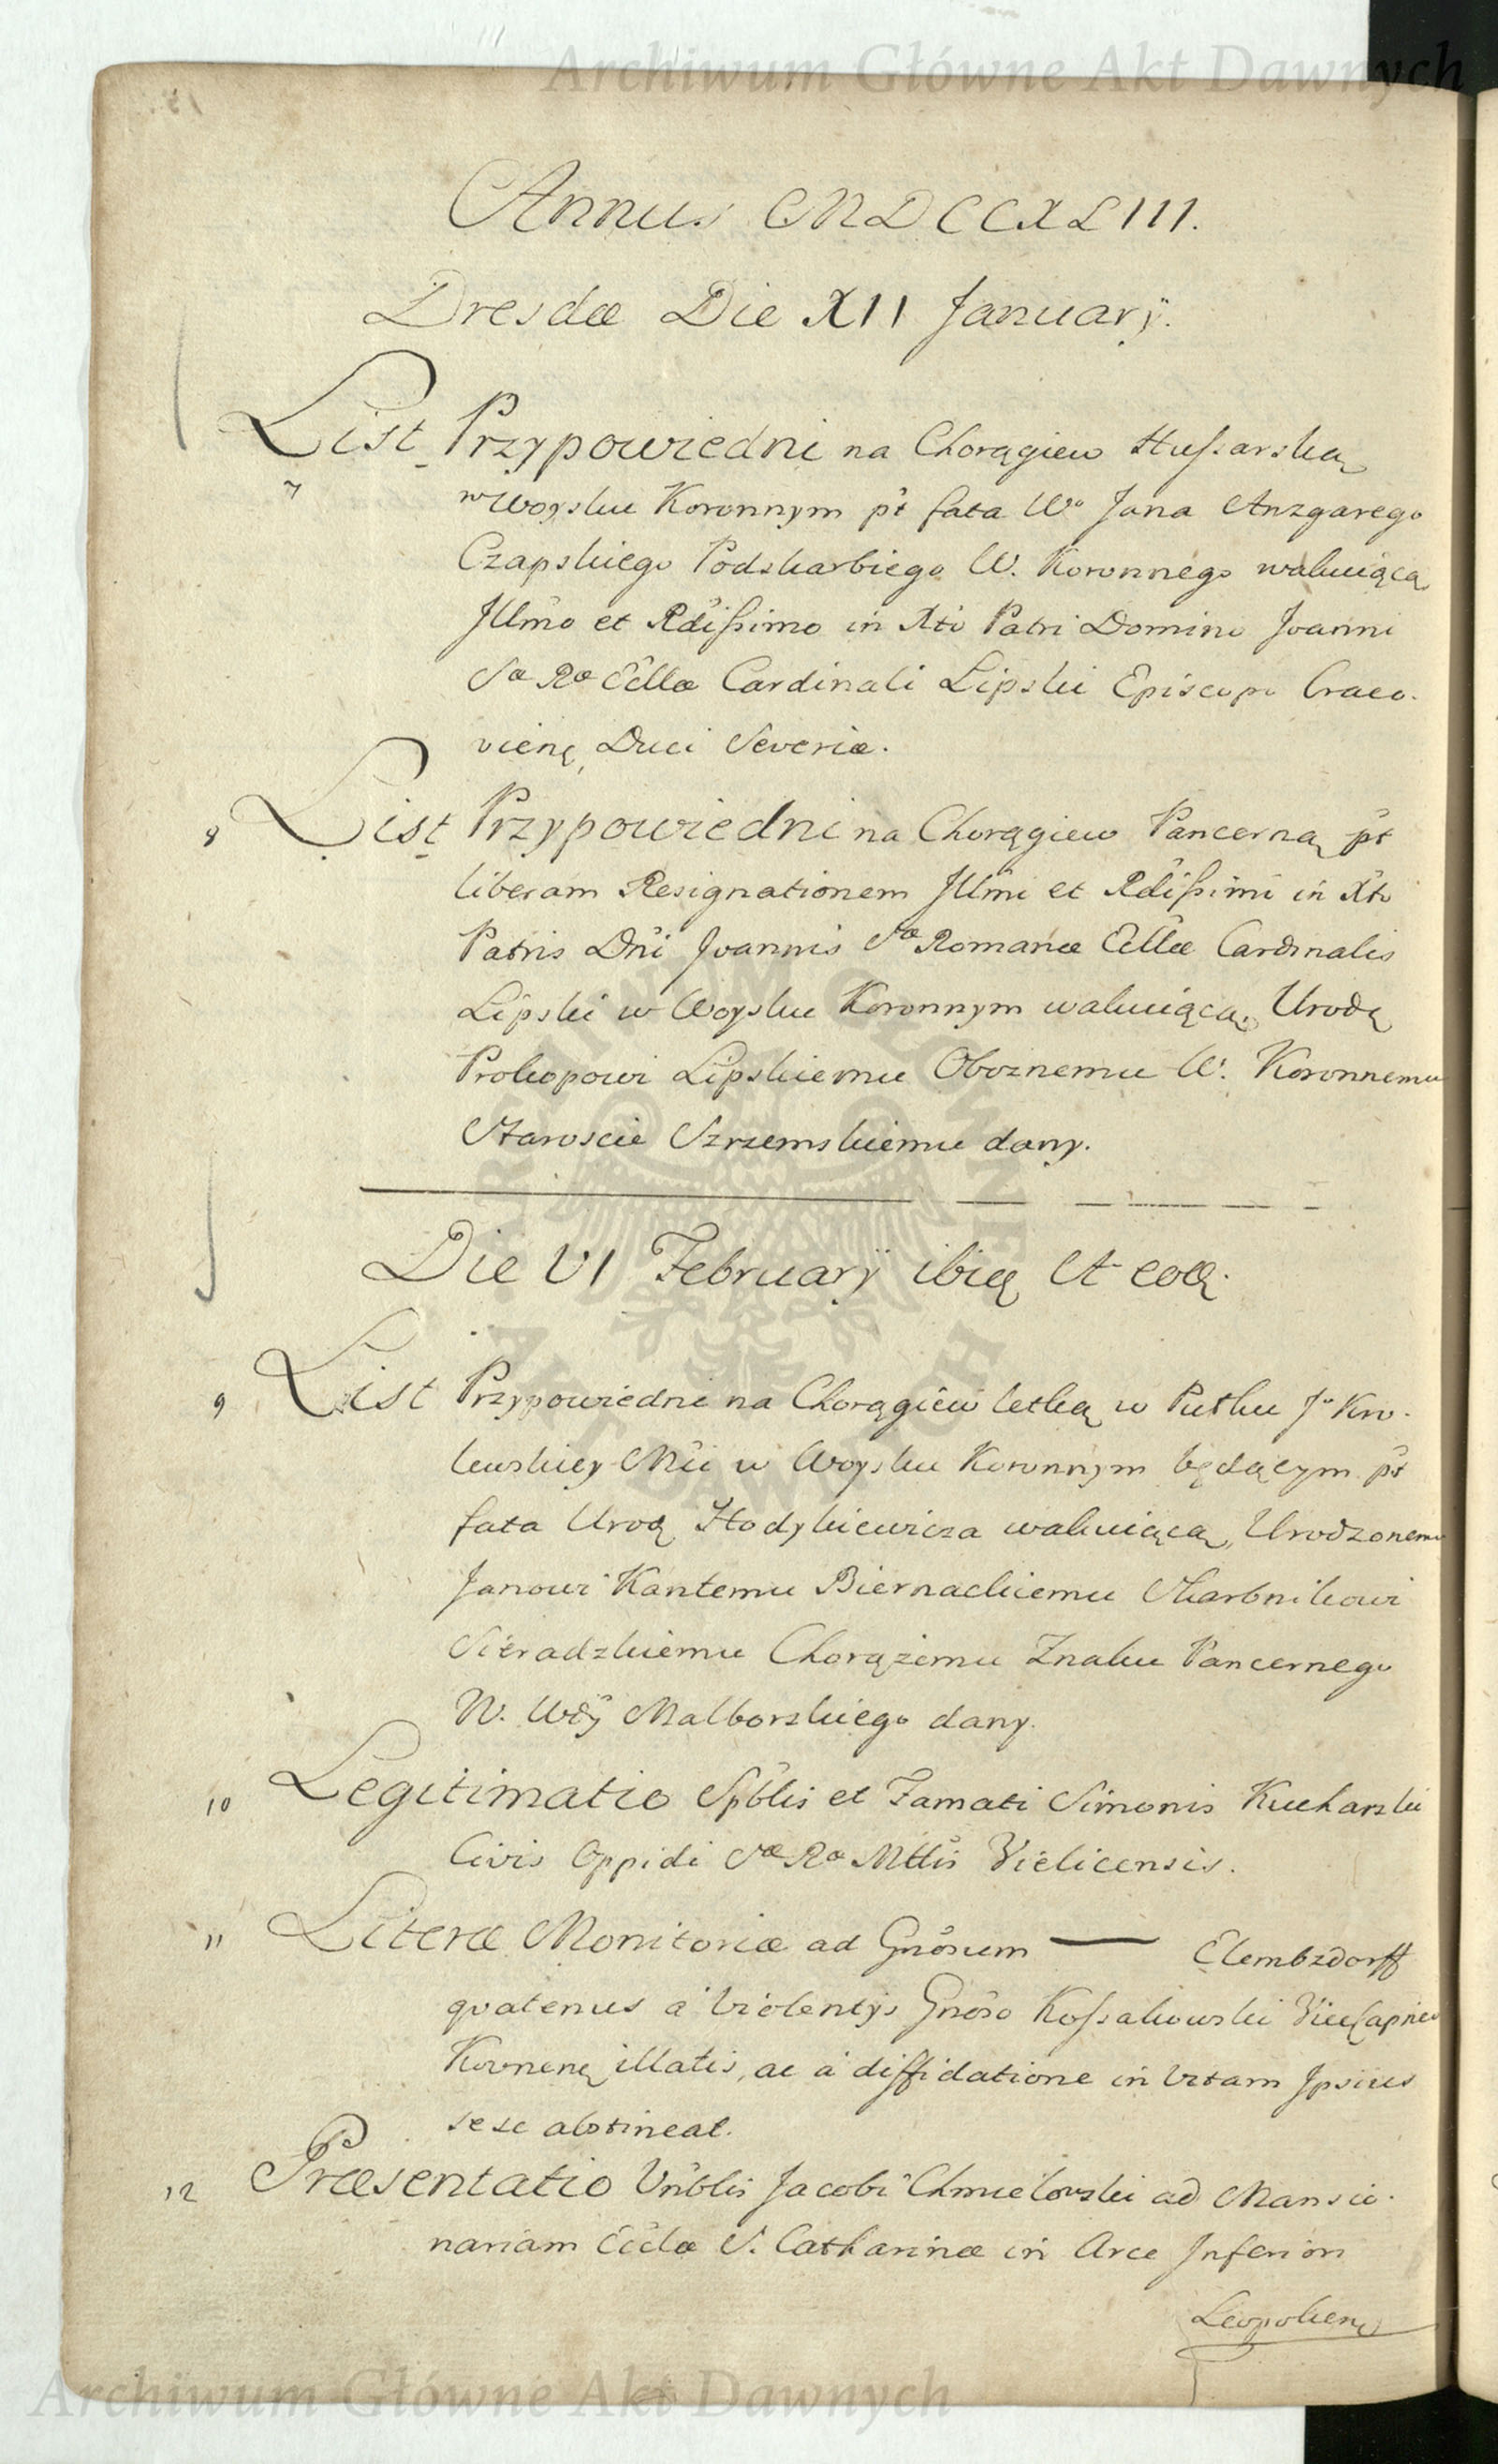 Archiwum Główne Akt Dawnych
Annus MDCCXLIII.
Dresdæ Die XII Januarÿ.
List Przypowiedni na Chorągiew Hussarską
7 w Woysku Koronnym pt fata Wo Jana Anzgarego
Czapskiego Podskarbiego W. Koronnego wakuiącą
Illmo et Rdissimo in Xto Patri Domino Joanni
Sæ Ræ Eccllæ Cardinali Lipski Episcopo Craco-
vienę Duci Severiæ.
8 List Przypowiedni na Chorągiew Pancerną pt
liberam Resignationem Illmi et Rdissimi in Xto
Patris Dni Joannis Sæ Romanæ Ecllæ Cardinalis
Lipski w Woysku Koronnym wakuiącą, Urodę
Prokopowi Lipskiemu Oboznemu W. Koronnemu
Staroscie Szremskiemu dany.
Die VI Februarÿ ibię et eoę.
9 List Przypowiedni na Chorągiew letką w Pułku Jo Kro-
lewskiey Mci w Woysku Koronnym będącym pt
fata Uroę Hodykiewicza wakuiącą, Urodzonemu
Janowi Kantemu Biernackiemu Skarbnikowi
Sieradzkiemu Chorążemu Znaku Pancernego
W. Wdÿ Malborskiego dany.
10 Legitimatio Spblis et Famati Simonis Kucharski
Civis Oppidi Sæ Ræ Mttis Vielicensis.
11 Literæ Monitoriæ ad Gnosum — Clembzdorff
quatenus a violentÿs Gnoso Kossakowski ViceCapneo
Kovnenę illatis, ac a diffidatione in vitam Ipsius
sese abstineat.
12 Præsentatio Vnblis Jacobi Chmielowski ad Mansio-
nariam Eccłæ S. Catharinæ in Arce Inferiori
Leopolienę
ARCHIWUM GŁÓWNE AKT DAWNYCH
Archiwum Główne Akt Dawnych